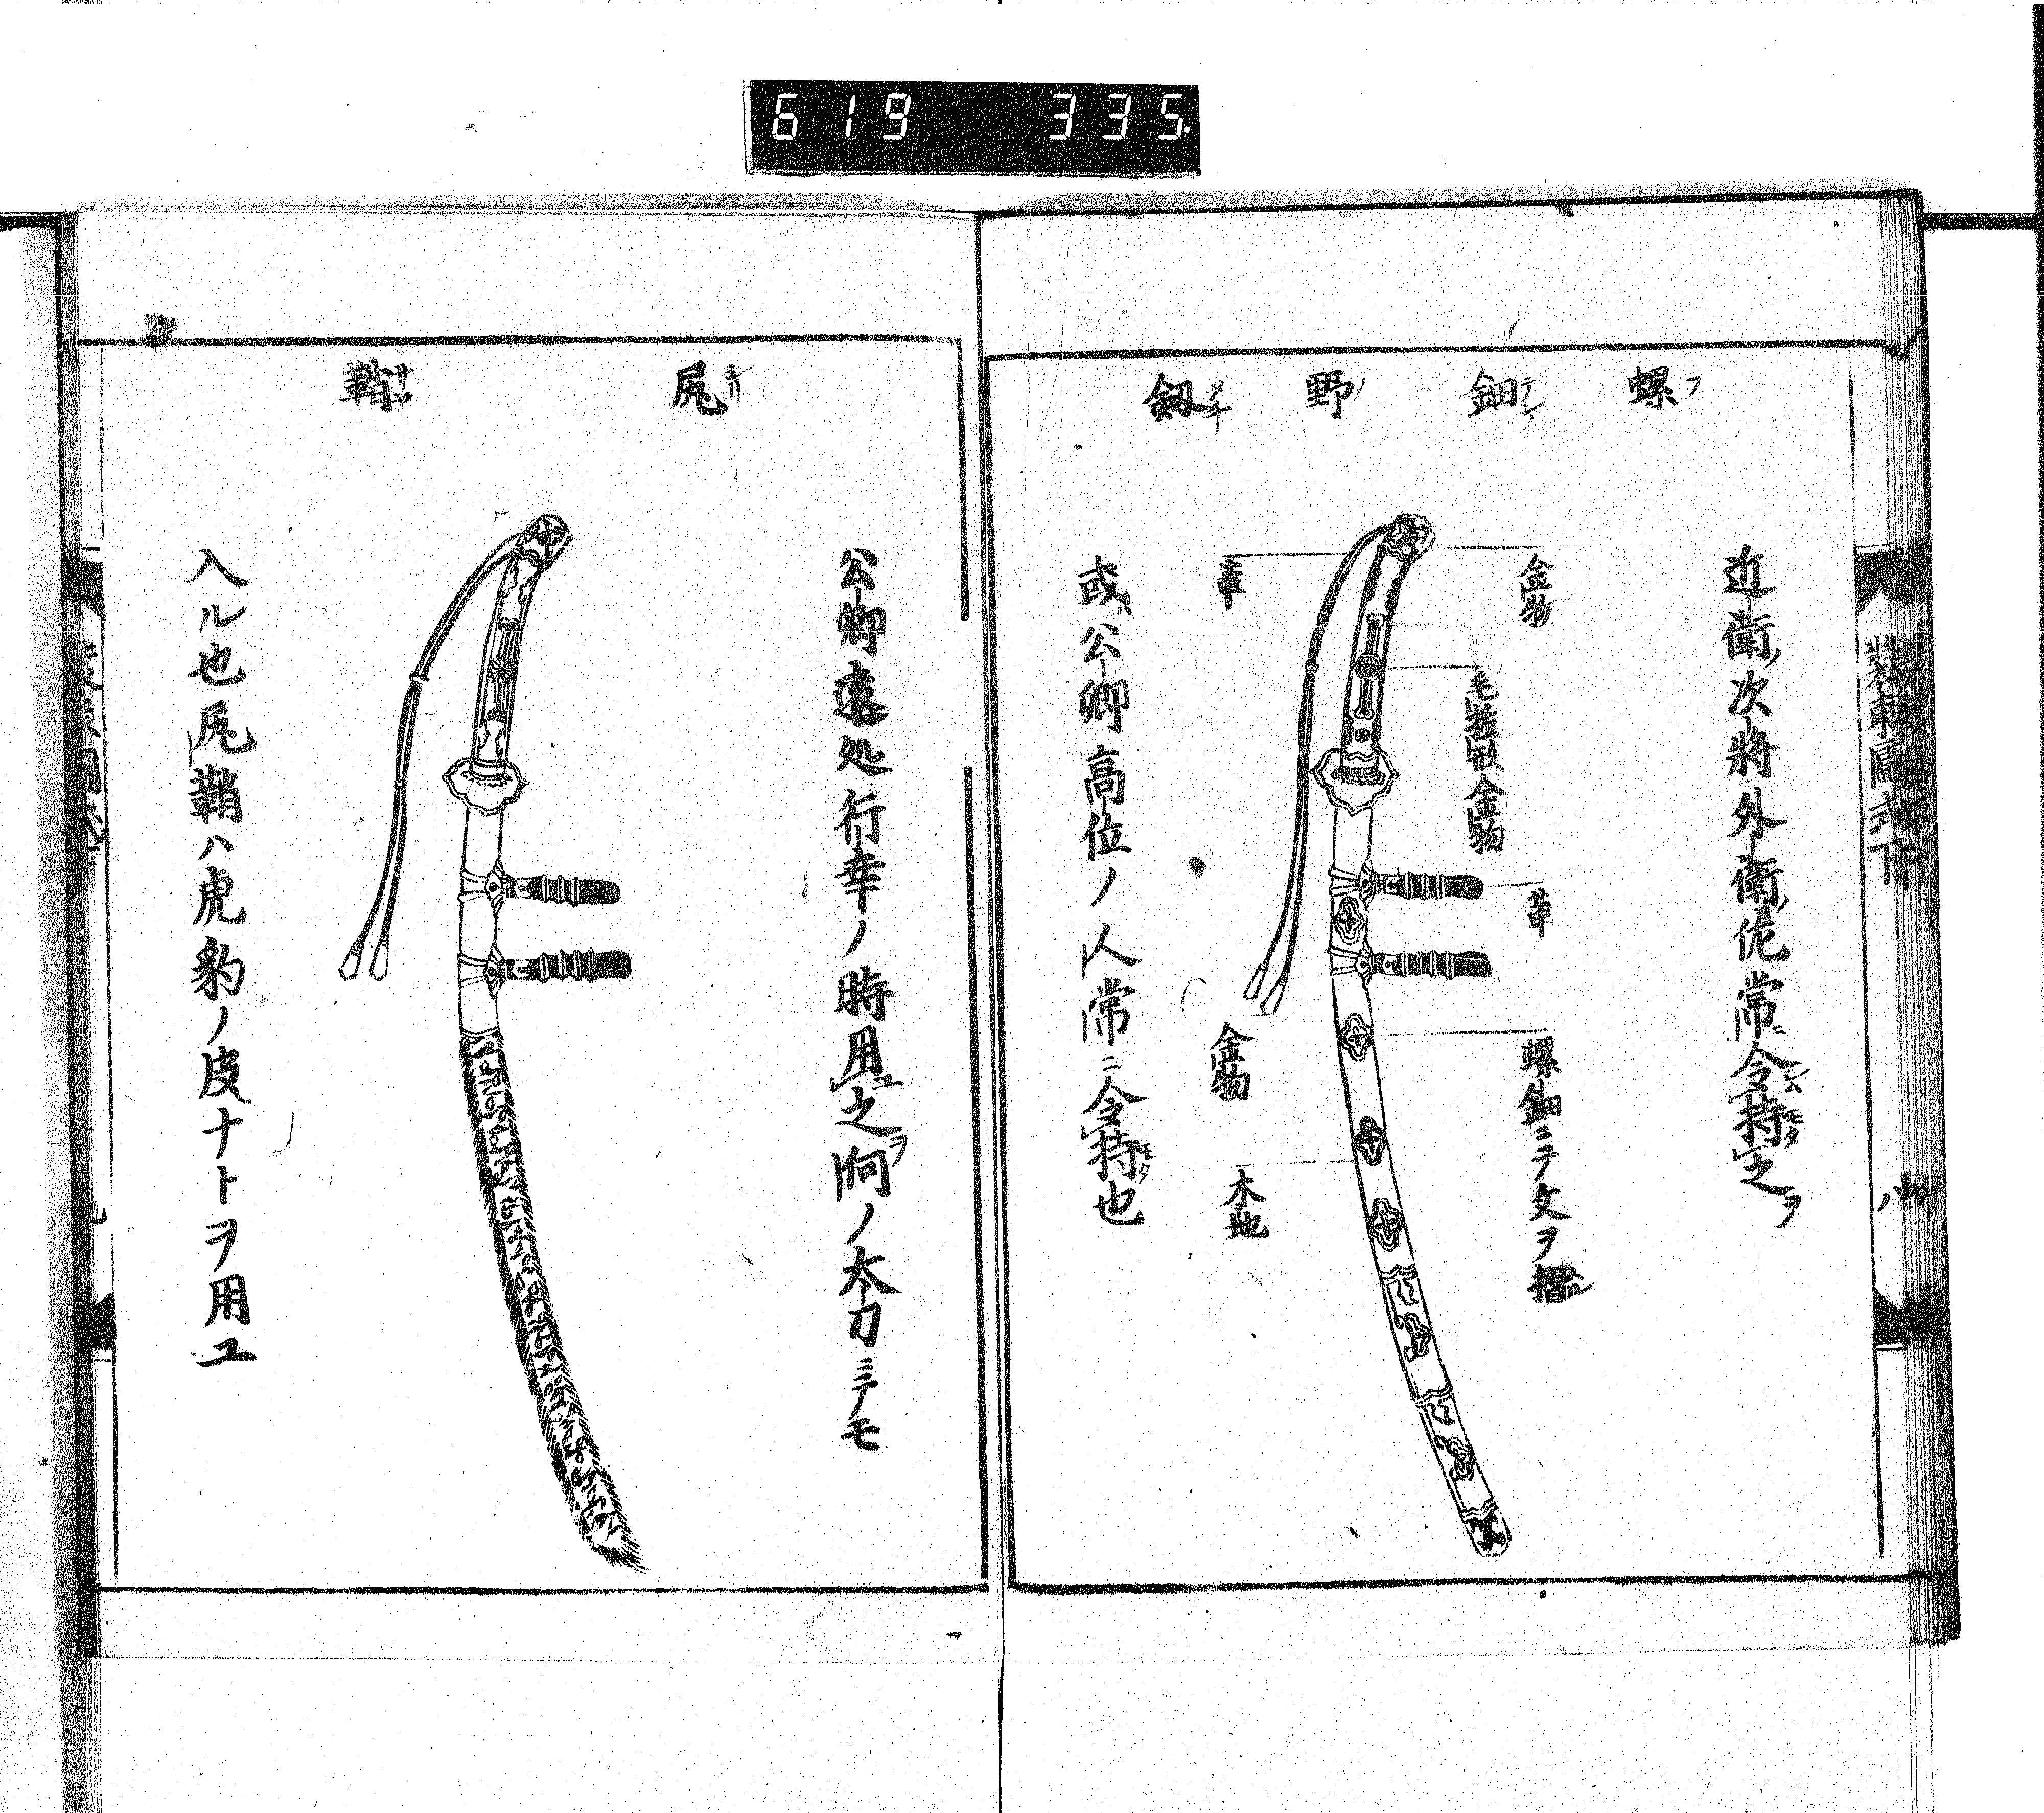 619 335
螺鈿野劔
近衛ノ次將外衛ノ佐常ニ令持之ヲ
金物
毛抜形金物
革
螺鈿ニテ文ヲ摺ル
革
金物
木地
或ハ公卿高位ノ人常ニ令持也
裝束圖式下
八
尻鞘
公卿遠処行幸ノ時用之何ノ太刀ニテモ
入ル也尻鞘ハ虎豹ノ皮ナトヲ用ユ